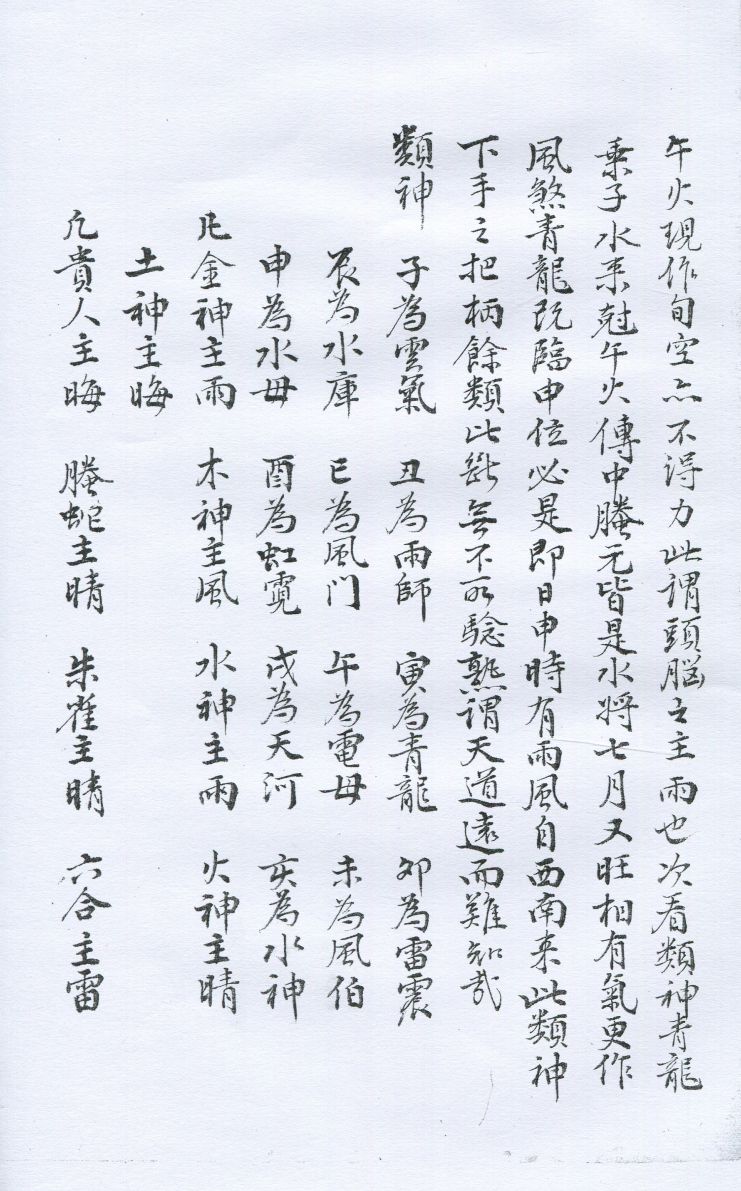 午火現作旬空亦不得力此謂頭腦之主雨也次看類神青龍
乘子水来尅午火傳中螣元皆是水將七月又旺相有氣更作
風煞青龍既臨申位必是即日申時有雨風自西南来此類神
下手之把柄餘類此斷無不取驗熟謂天道遠而難知哉
類神 子為雲氣 丑為雨師 寅為青龍 卯為雷震
辰為水庫 巳為風门 午為電母 未為風伯
申為水母 酉為虹霓 戌為天河 亥為水神
凡金神主雨 木神主風 水神主雨 火神主晴
土神主晦
凡貴人主晦 螣蛇主晴 朱雀主晴 六合主雷